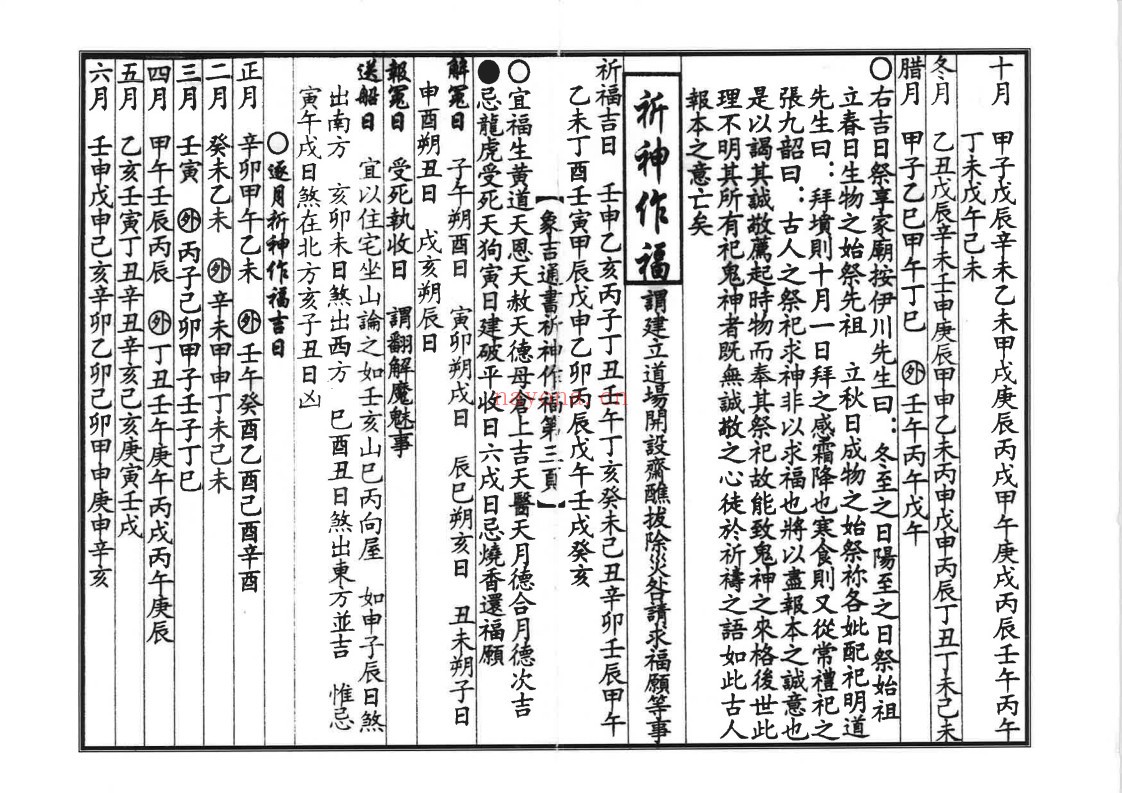 十月　甲子戊辰辛未乙未甲戌庚辰丙戌甲午庚戌丙辰壬午丙午
丁未戊午己未
冬月　乙丑戊辰辛未壬申庚辰甲申乙未丙申戊申丙辰丁丑丁未己未
腊月　甲子乙巳甲午丁巳　外壬午丙午戊午
〇右吉日祭享家廟按伊川先生曰：冬至之日陽至之日祭始祖
立春日生物之始祭先祖　立秋日成物之始祭祢各妣配祀明道
先生曰：拜墳則十月一日拜之感霜降也寒食則又從常禮祀之
張九韶曰：古人之祭祀求神非以求福也將以盡報本之誠意也
是以謁其誠敬薦起時物而奉其祭祀故能致鬼神之來格後世此
理不明其所有祀鬼神者既無誠敬之心徒於祈禱之語如此古人
報本之意亡矣
祈神作福　謂建立道場開設齋醮拔除災处請求福願等事
祈福吉日　壬申乙亥丙子丁丑壬午丁亥癸未己丑辛卯壬辰甲午
乙未丁酉壬寅甲辰戊申乙卯丙辰戊午壬戌癸亥
【象吉通書祈神作福第三頁】
〇宜福生黄道天恩天赦天德母倉上吉天醫天月德合月德次吉
●忌龍虎受死天狗寅日建破平收日六戌日忌燒香還福願
解冤日　子午朔酉日　寅卯朔戌日　辰巳朔亥日　丑未朔子日
申酉朔丑日　戌亥朔辰日
報冤日　受死執收日　謂翻解魔魅事
送船日　宜以住宅坐山論之如壬亥山巳丙向屋　如申子辰日煞
出南方　亥卯未日煞出西方　巳酉丑日煞出東方並吉　惟忌
寅午戌日煞在北方亥子丑日凶
〇逐月祈神作福吉日
正月　辛卯甲午乙未　外壬午癸酉乙酉己酉辛酉
二月　癸未乙未　外辛未甲申丁未己未
三月　壬寅　外丙子己卯甲子壬子丁巳
四月　甲午壬辰丙辰　外丁丑壬午庚午丙戌丙午庚辰
五月　乙亥壬寅丁丑辛丑辛亥己亥庚寅壬戌
六月　壬申戊申己亥辛卯乙卯己卯甲申庚申辛亥
nayona.cn